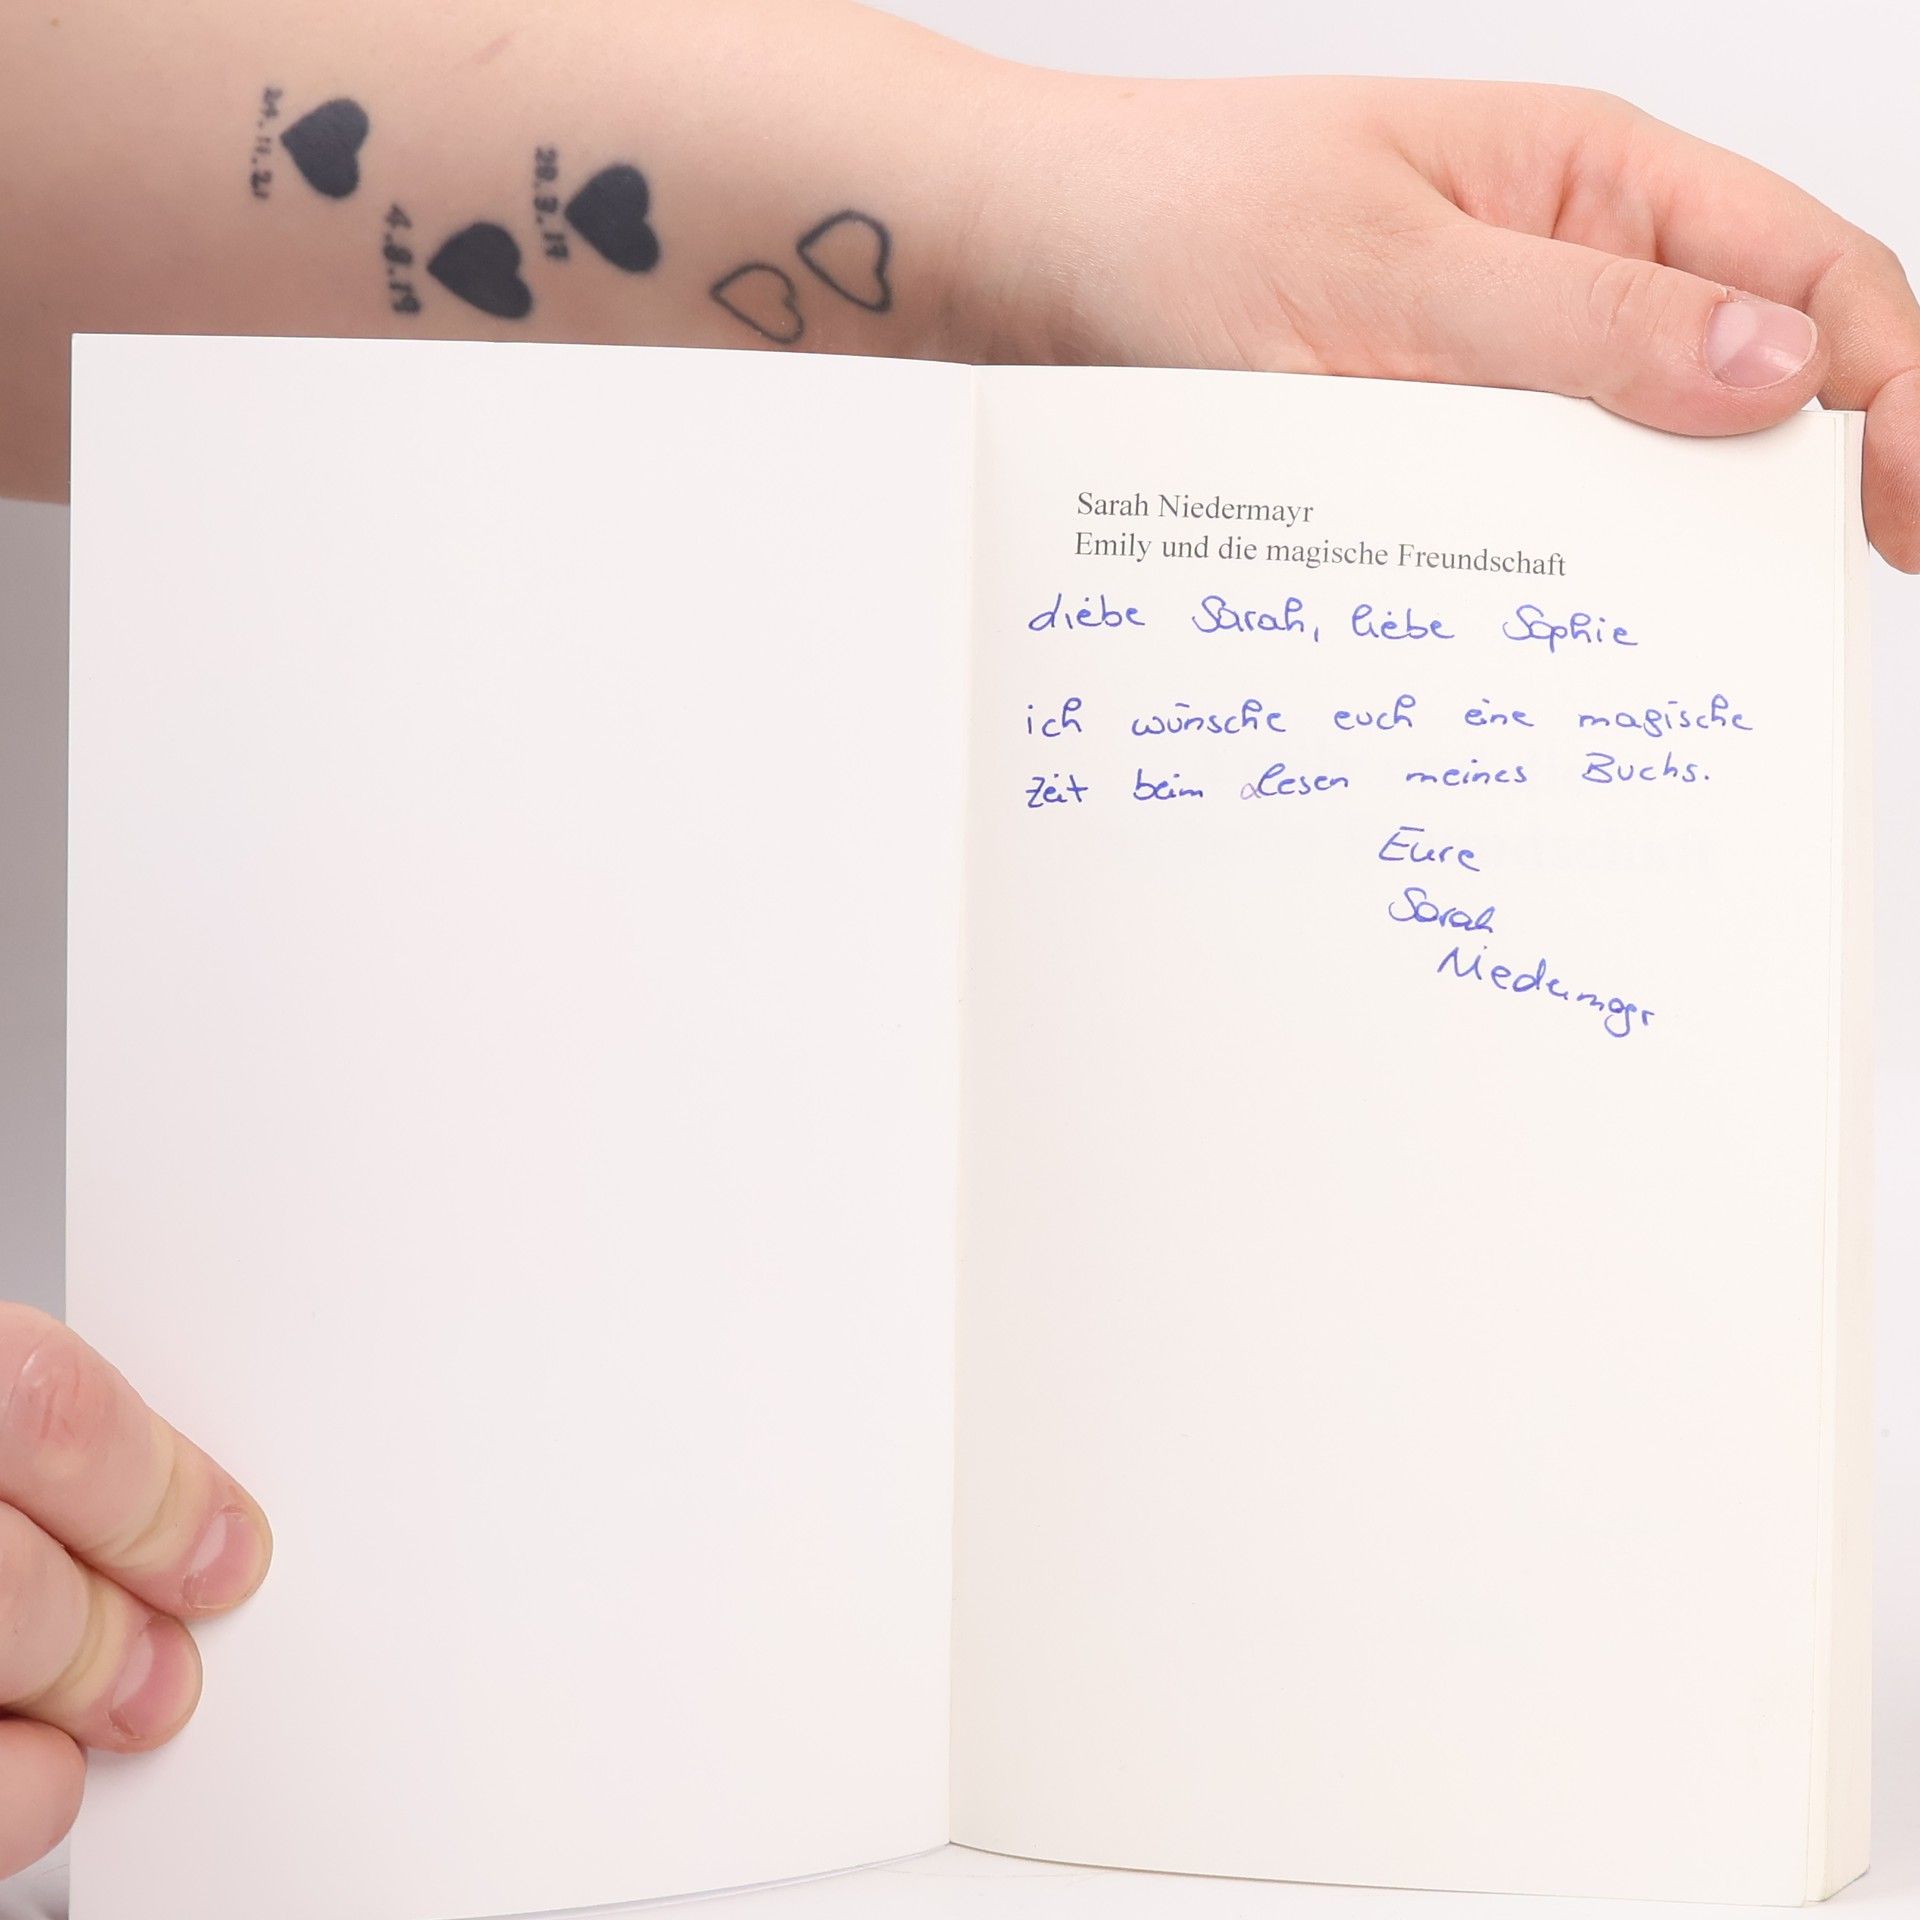 21.11.21
4.8.19
28.3.19
Sarah Niedermayr
Emily und die magische Freundschaft
Liebe Sarah, liebe Sophie
ich wünsche euch eine magische
Zeit beim Lesen meines Buchs.
Eure
Sarah
Niedermayr